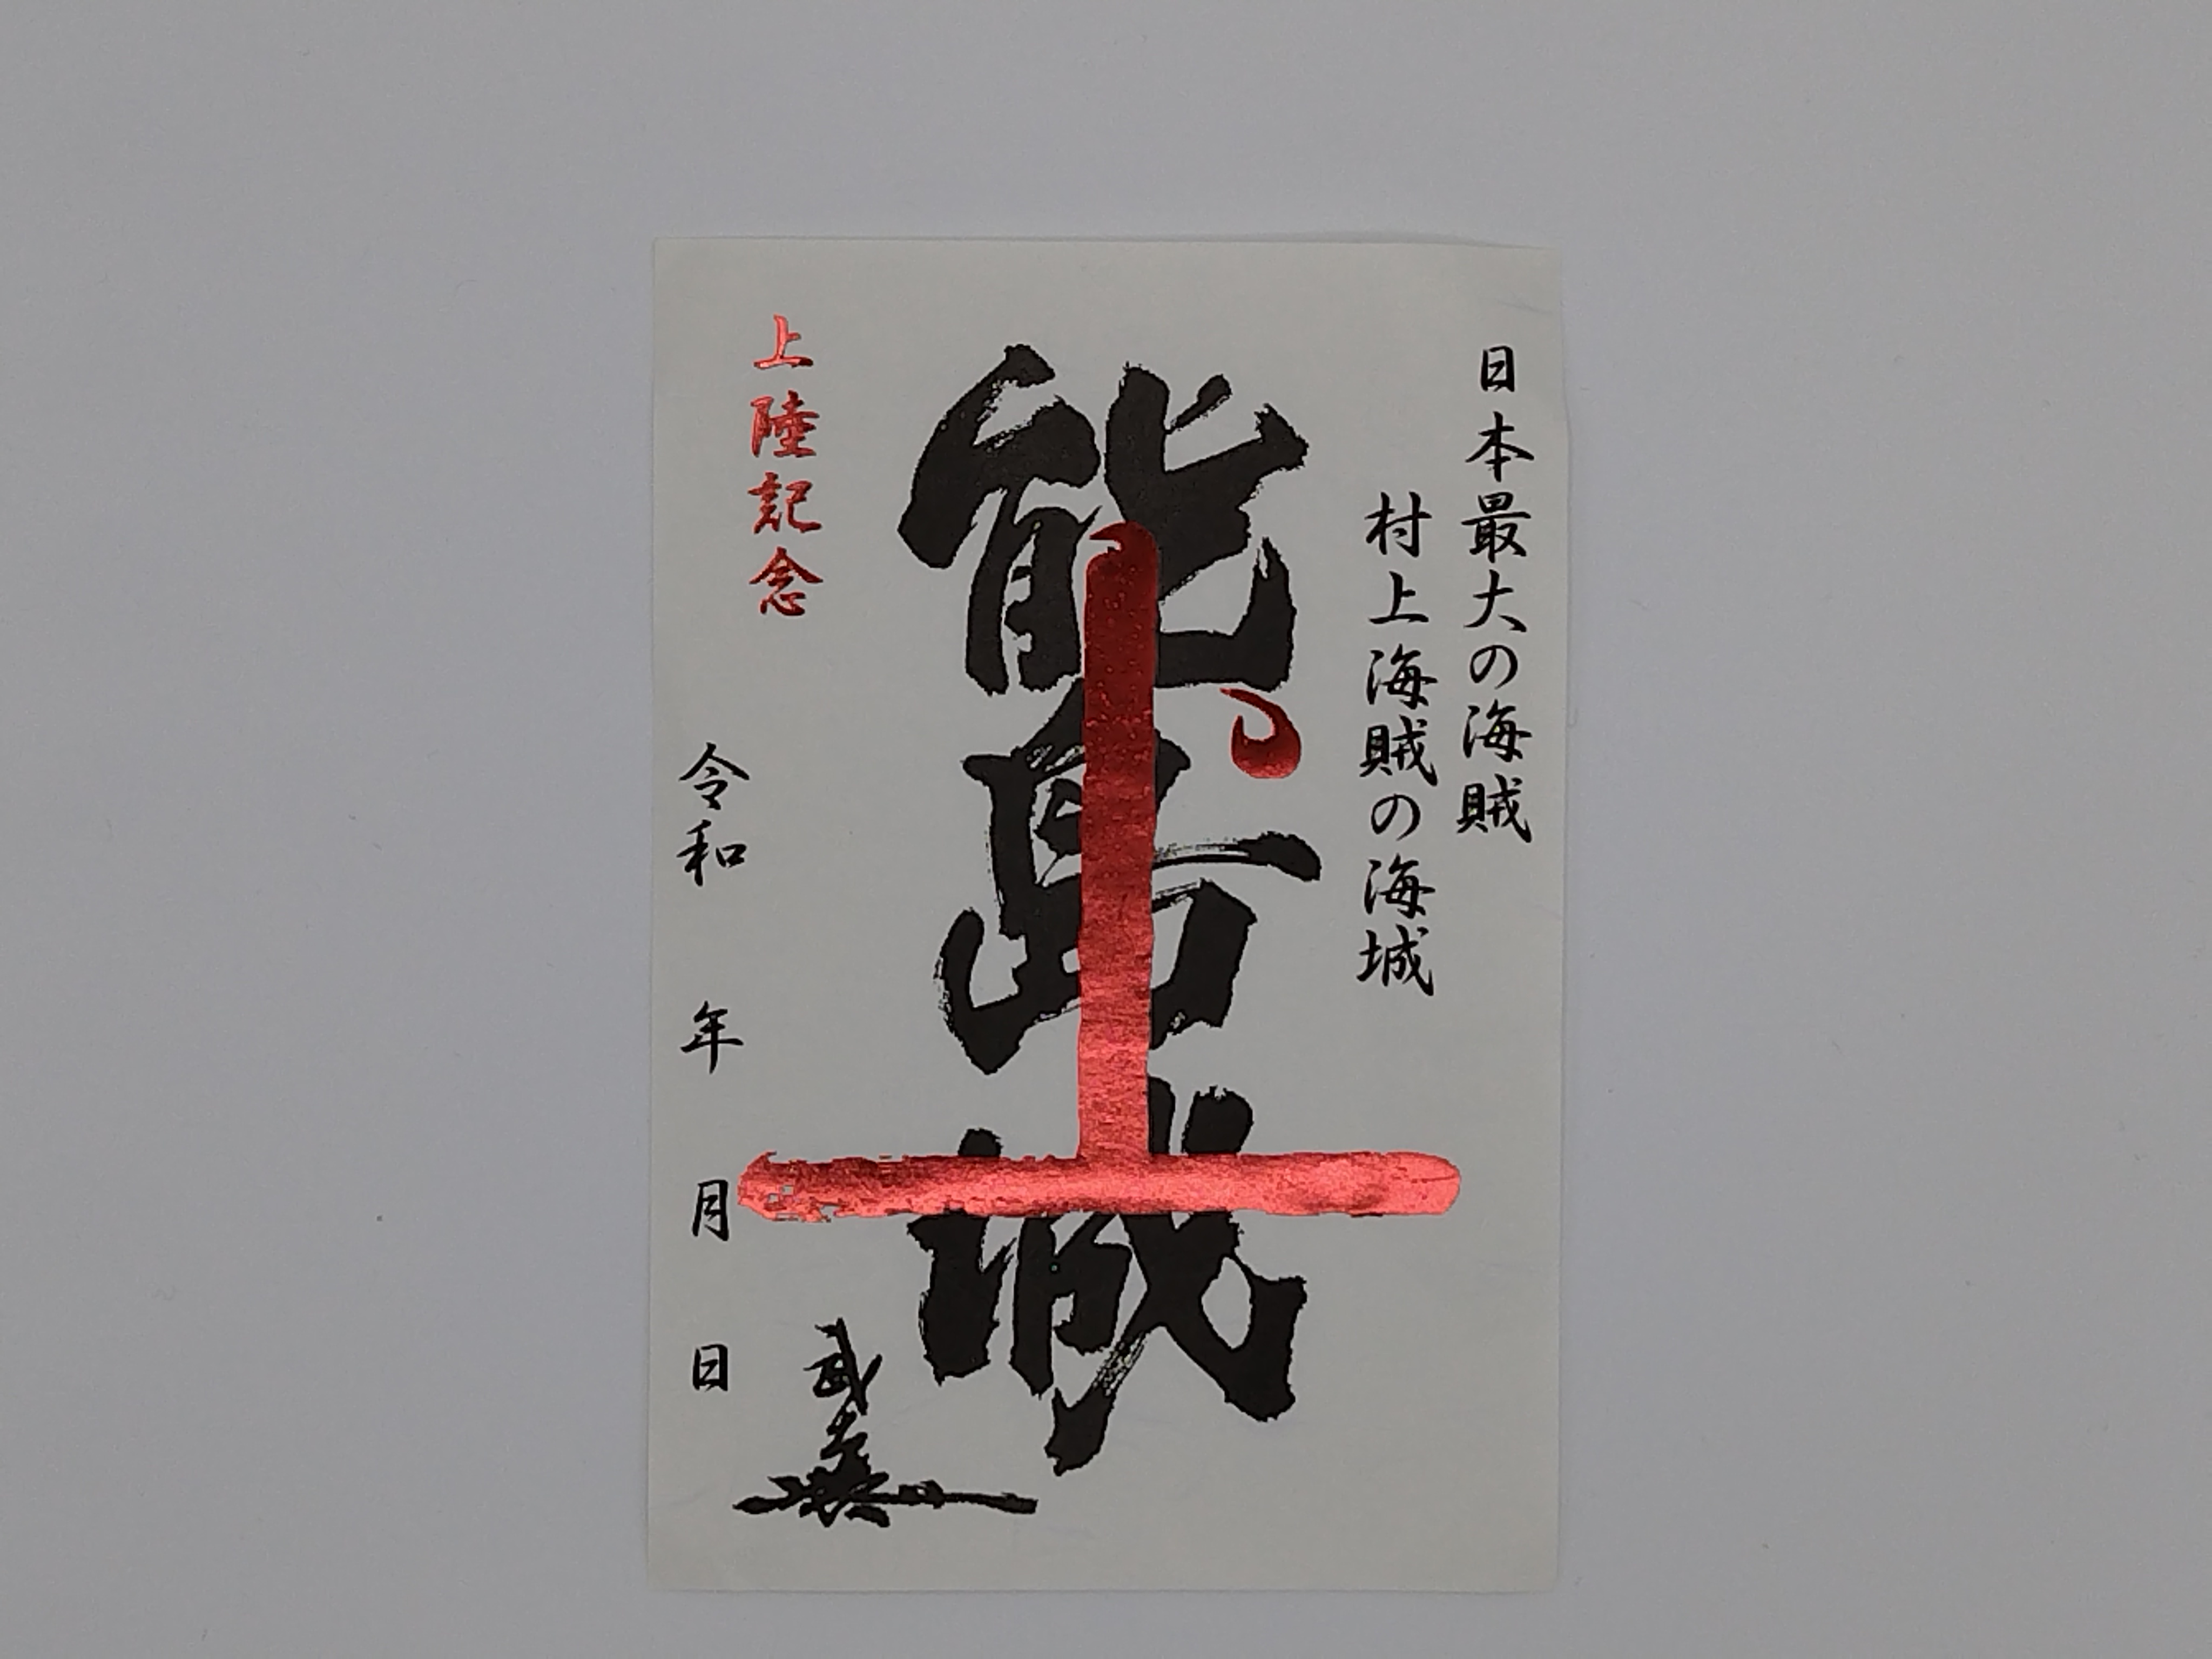 日本最大の海賊
村上海賊の海城
能島城
上
上陸記念
令和 年 月 日